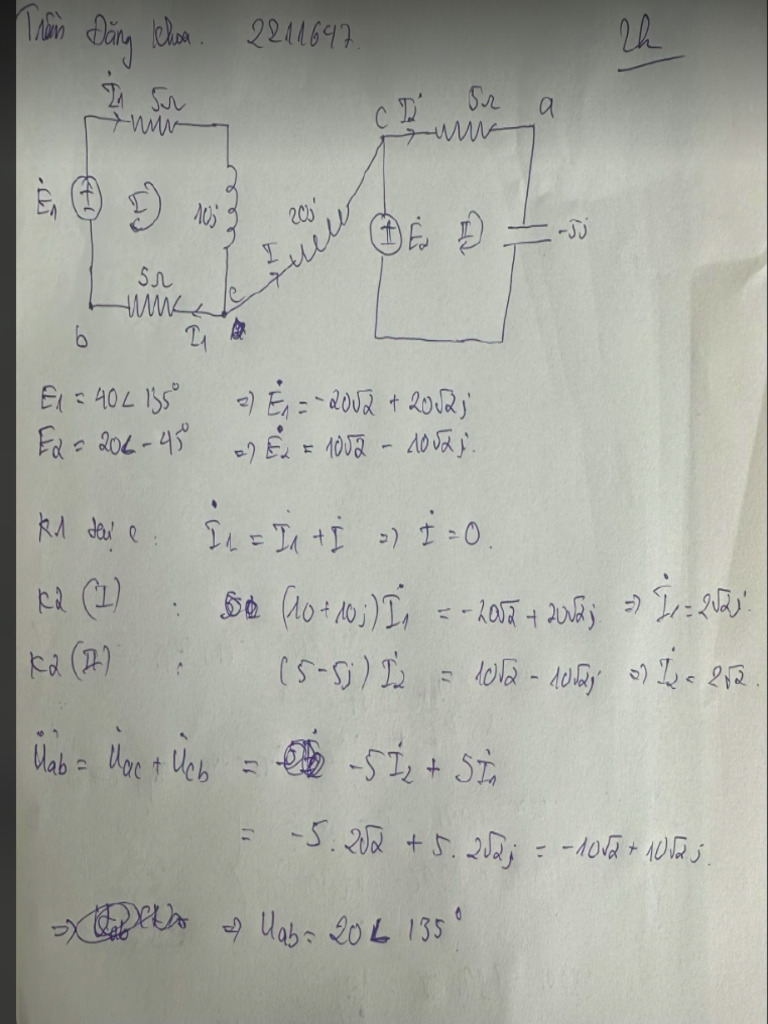 Trần Đăng Khoa. 2211647.
İ1 5Ω
Ė1 I 10j
5Ω
b I1 c
I 20j
c İ2 5Ω a
Ė2 II -5j
E1 = 40∠135° => Ė1 = -20√2 + 20√2j
E2 = 20∠-45° => Ė2 = 10√2 - 10√2j.
K1 tại c : İ1 = İ1 + İ => İ = 0.
K2 (I) : (10+10j) İ1 = -20√2 + 20√2j => İ1 = 2√2j.
K2 (II) : (5-5j) İ2 = 10√2 - 10√2j => İ2 = 2√2.
U̇ab = U̇ac + U̇cb = -5İ2 + 5İ1
= -5.2√2 + 5.2√2j = -10√2 + 10√2j.
=> => Uab = 20∠135°